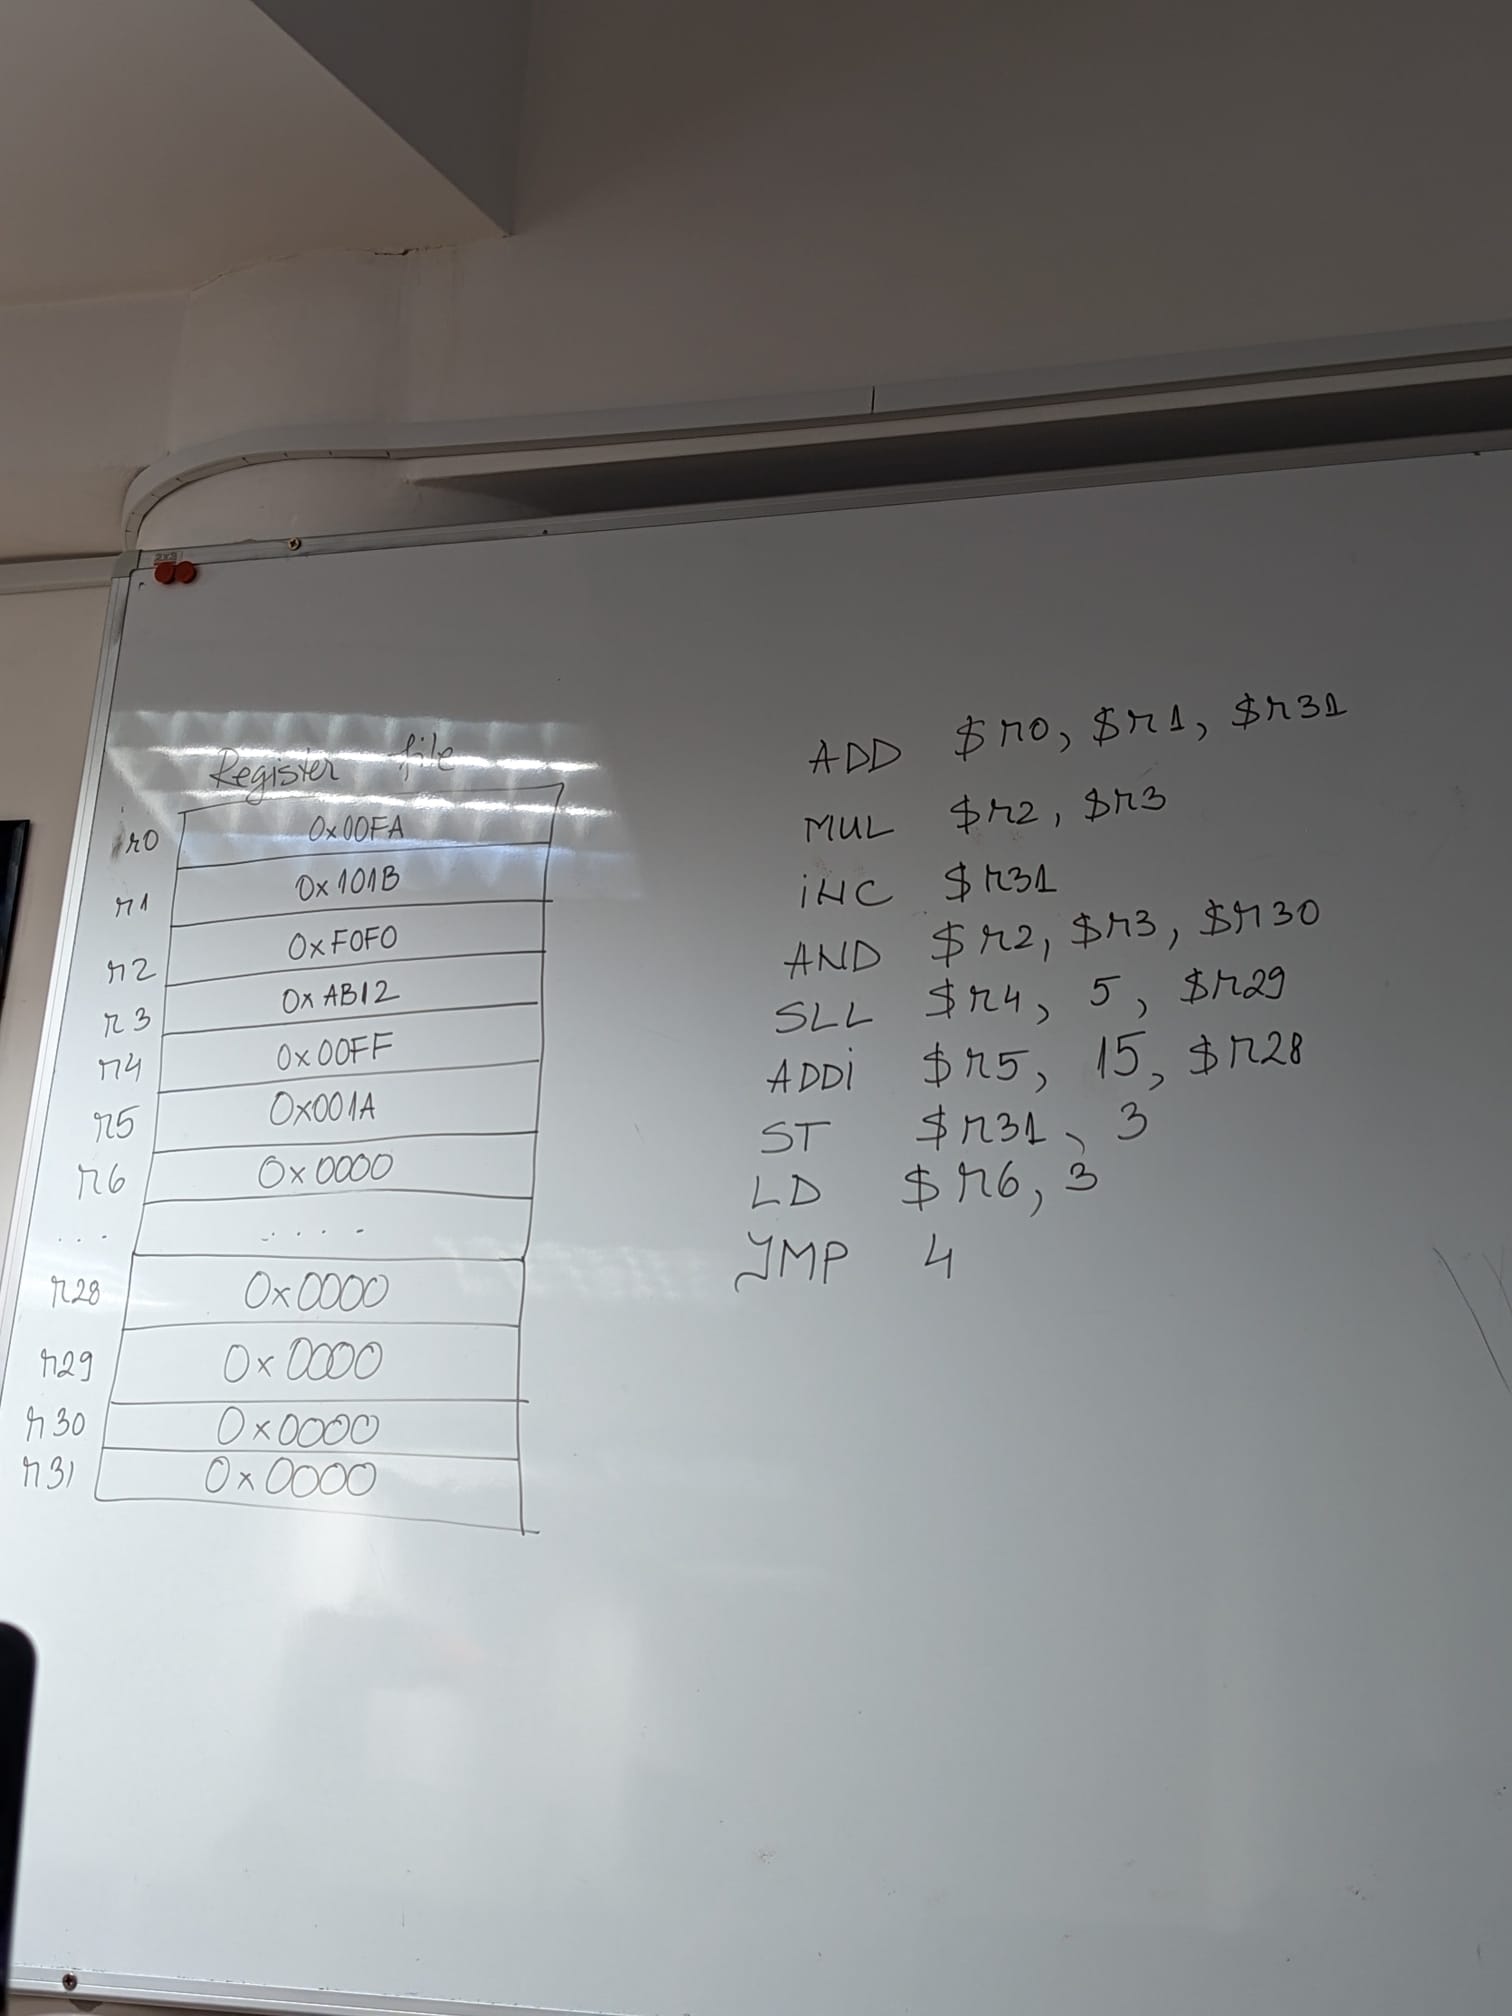 Register file
r0 0x00FA
r1 0x101B
r2 0xF0F0
r3 0xAB12
r4 0x00FF
r5 0x001A
r6 0x0000
... ....
r28 0x0000
r29 0x0000
r30 0x0000
r31 0x0000
ADD $r0, $r1, $r31
MUL $r2, $r3
iNC $r31
AND $r2, $r3, $r30
SLL $r4, 5, $r29
ADDi $r5, 15, $r28
ST $r31, 3
LD $r6, 3
JMP 4